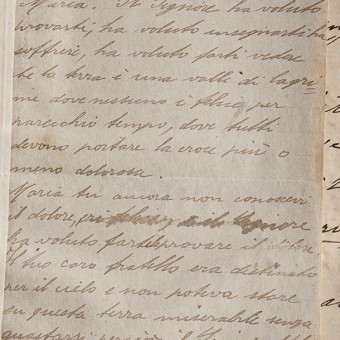 Maria. Il Signore ha voluto
provarti, ha voluto insegnarti ha
soffrire, ha voluto farti vedere
che la terra è una valle di lagri=
me dove nessuno è felice per
parecchio tempo, dove tutti
devono portare la croce più o
meno dolorosa.
Maria tu ancora non conoscevi
il dolore, eri felice, e il Signore
ha voluto farti provare il dolore.
Il tuo caro fratello era destinato
per il cielo e non poteva stare
su questa terra miserabile senza
guastarsi perciò il